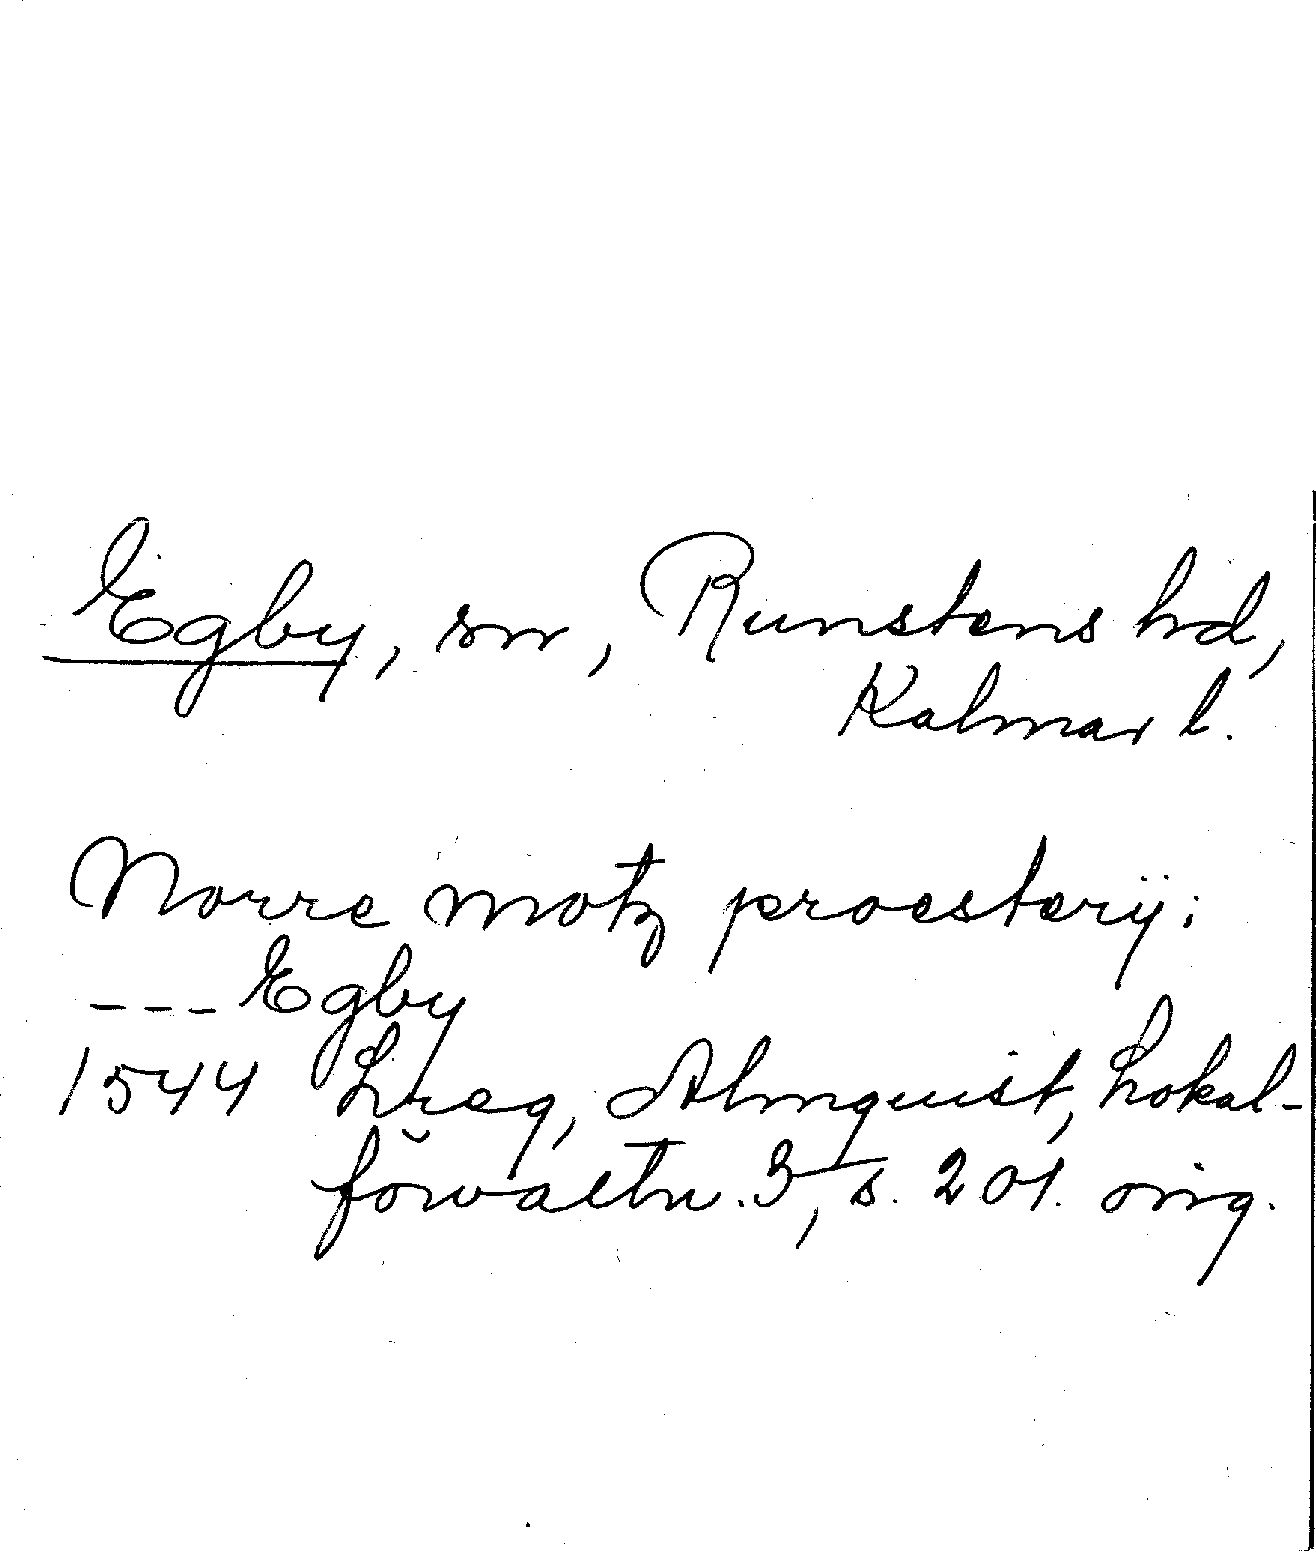 Egby, sn, Runstens hd,
Kalmar l.
Norre motz proesterij:
--- Egby
1544 Lreg, Almquist, Lokal-
förvaltn. 3, s. 201. orig.